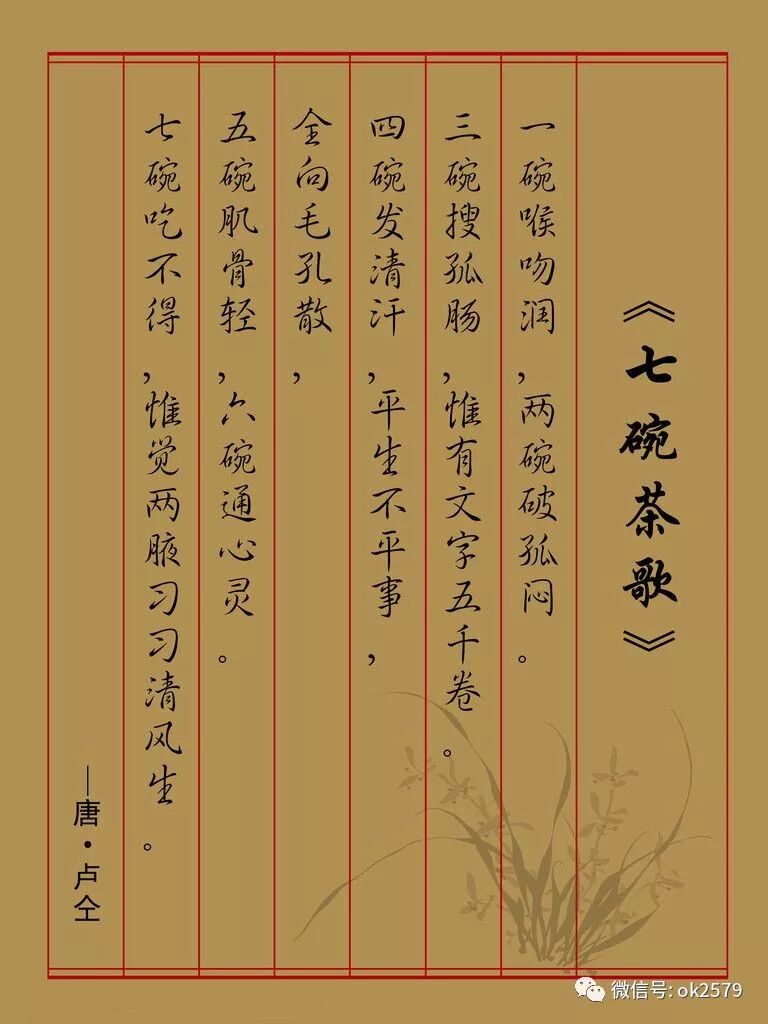 《七碗茶歌》
一碗喉吻润，两碗破孤闷。
三碗搜孤肠，惟有文字五千卷。
四碗发清汗，平生不平事，
全向毛孔散，
五碗肌骨轻，六碗通心灵。
七碗吃不得，惟觉两腋习习清风生。
—唐·卢仝
微信号: ok2579